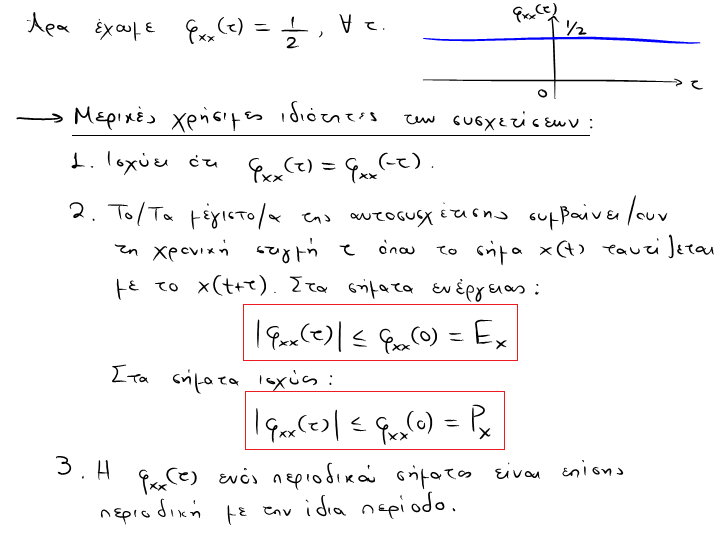 Άρα έχουμε φxx(τ) = 1/2, ∀ τ.
φxx(τ)
1/2
τ
0
→ Μερικές χρήσιμες ιδιότητες των συσχετίσεων:
1. Ισχύει ότι φxx(τ) = φxx(-τ).
2. Το/Τα μέγιστο/α της αυτοσυσχέτισης συμβαίνει/ουν
τη χρονική στιγμή τ όπου το σήμα x(t) ταυτίζεται
με το x(t+τ). Στα σήματα ενέργειας:
|φxx(τ)| ≤ φxx(0) = Ex
Στα σήματα ισχύος:
|φxx(τ)| ≤ φxx(0) = Px
3. Η φxx(τ) ενός περιοδικού σήματος είναι επίσης
περιοδική με την ίδια περίοδο.